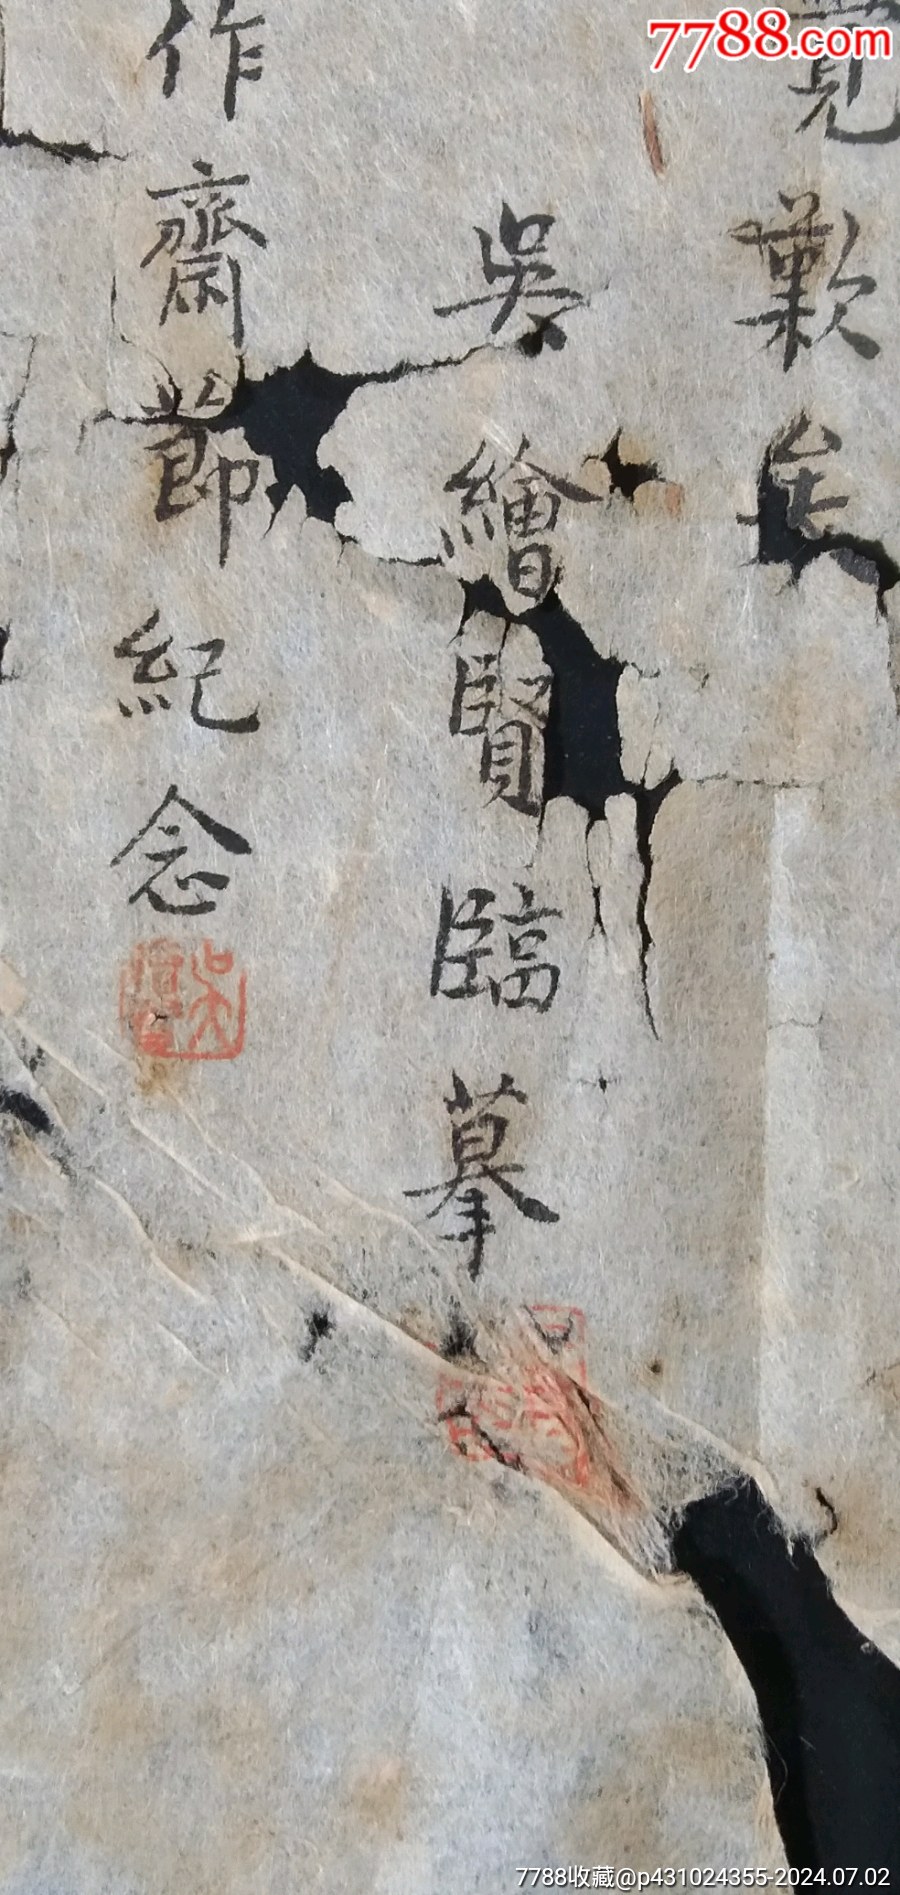 7788.com
歎矣
吳繪賢臨摹
作齋節紀念
吳
7788收藏@p431024355-2024.07.02